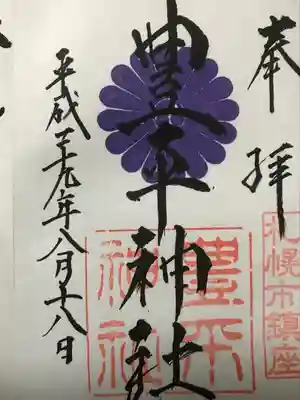 奉拝
札幌市鎮座
豊平神社
豊平神社
平成二十九年八月十八日